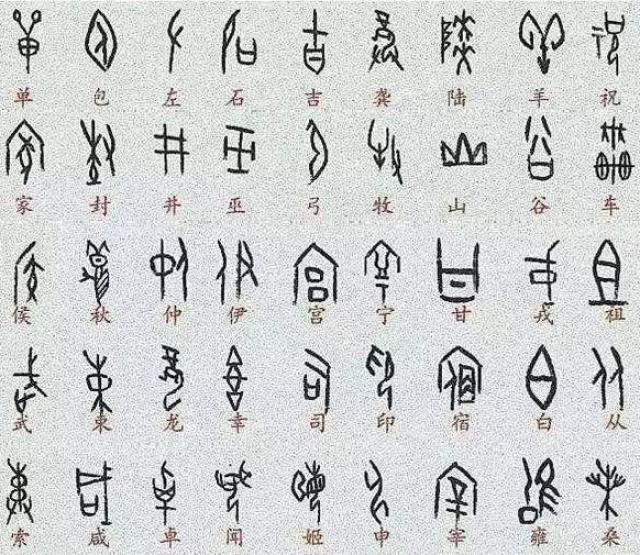 单 包 左 石 吉 龚 陆 羊 祝
家 封 井 巫 弓 牧 山 谷 车
侯 秋 仲 伊 宫 宁 甘 戎 祖
武 束 龙 幸 司 印 宿 白 从
索 咸 卓 闻 姬 申 宰 雍 桑